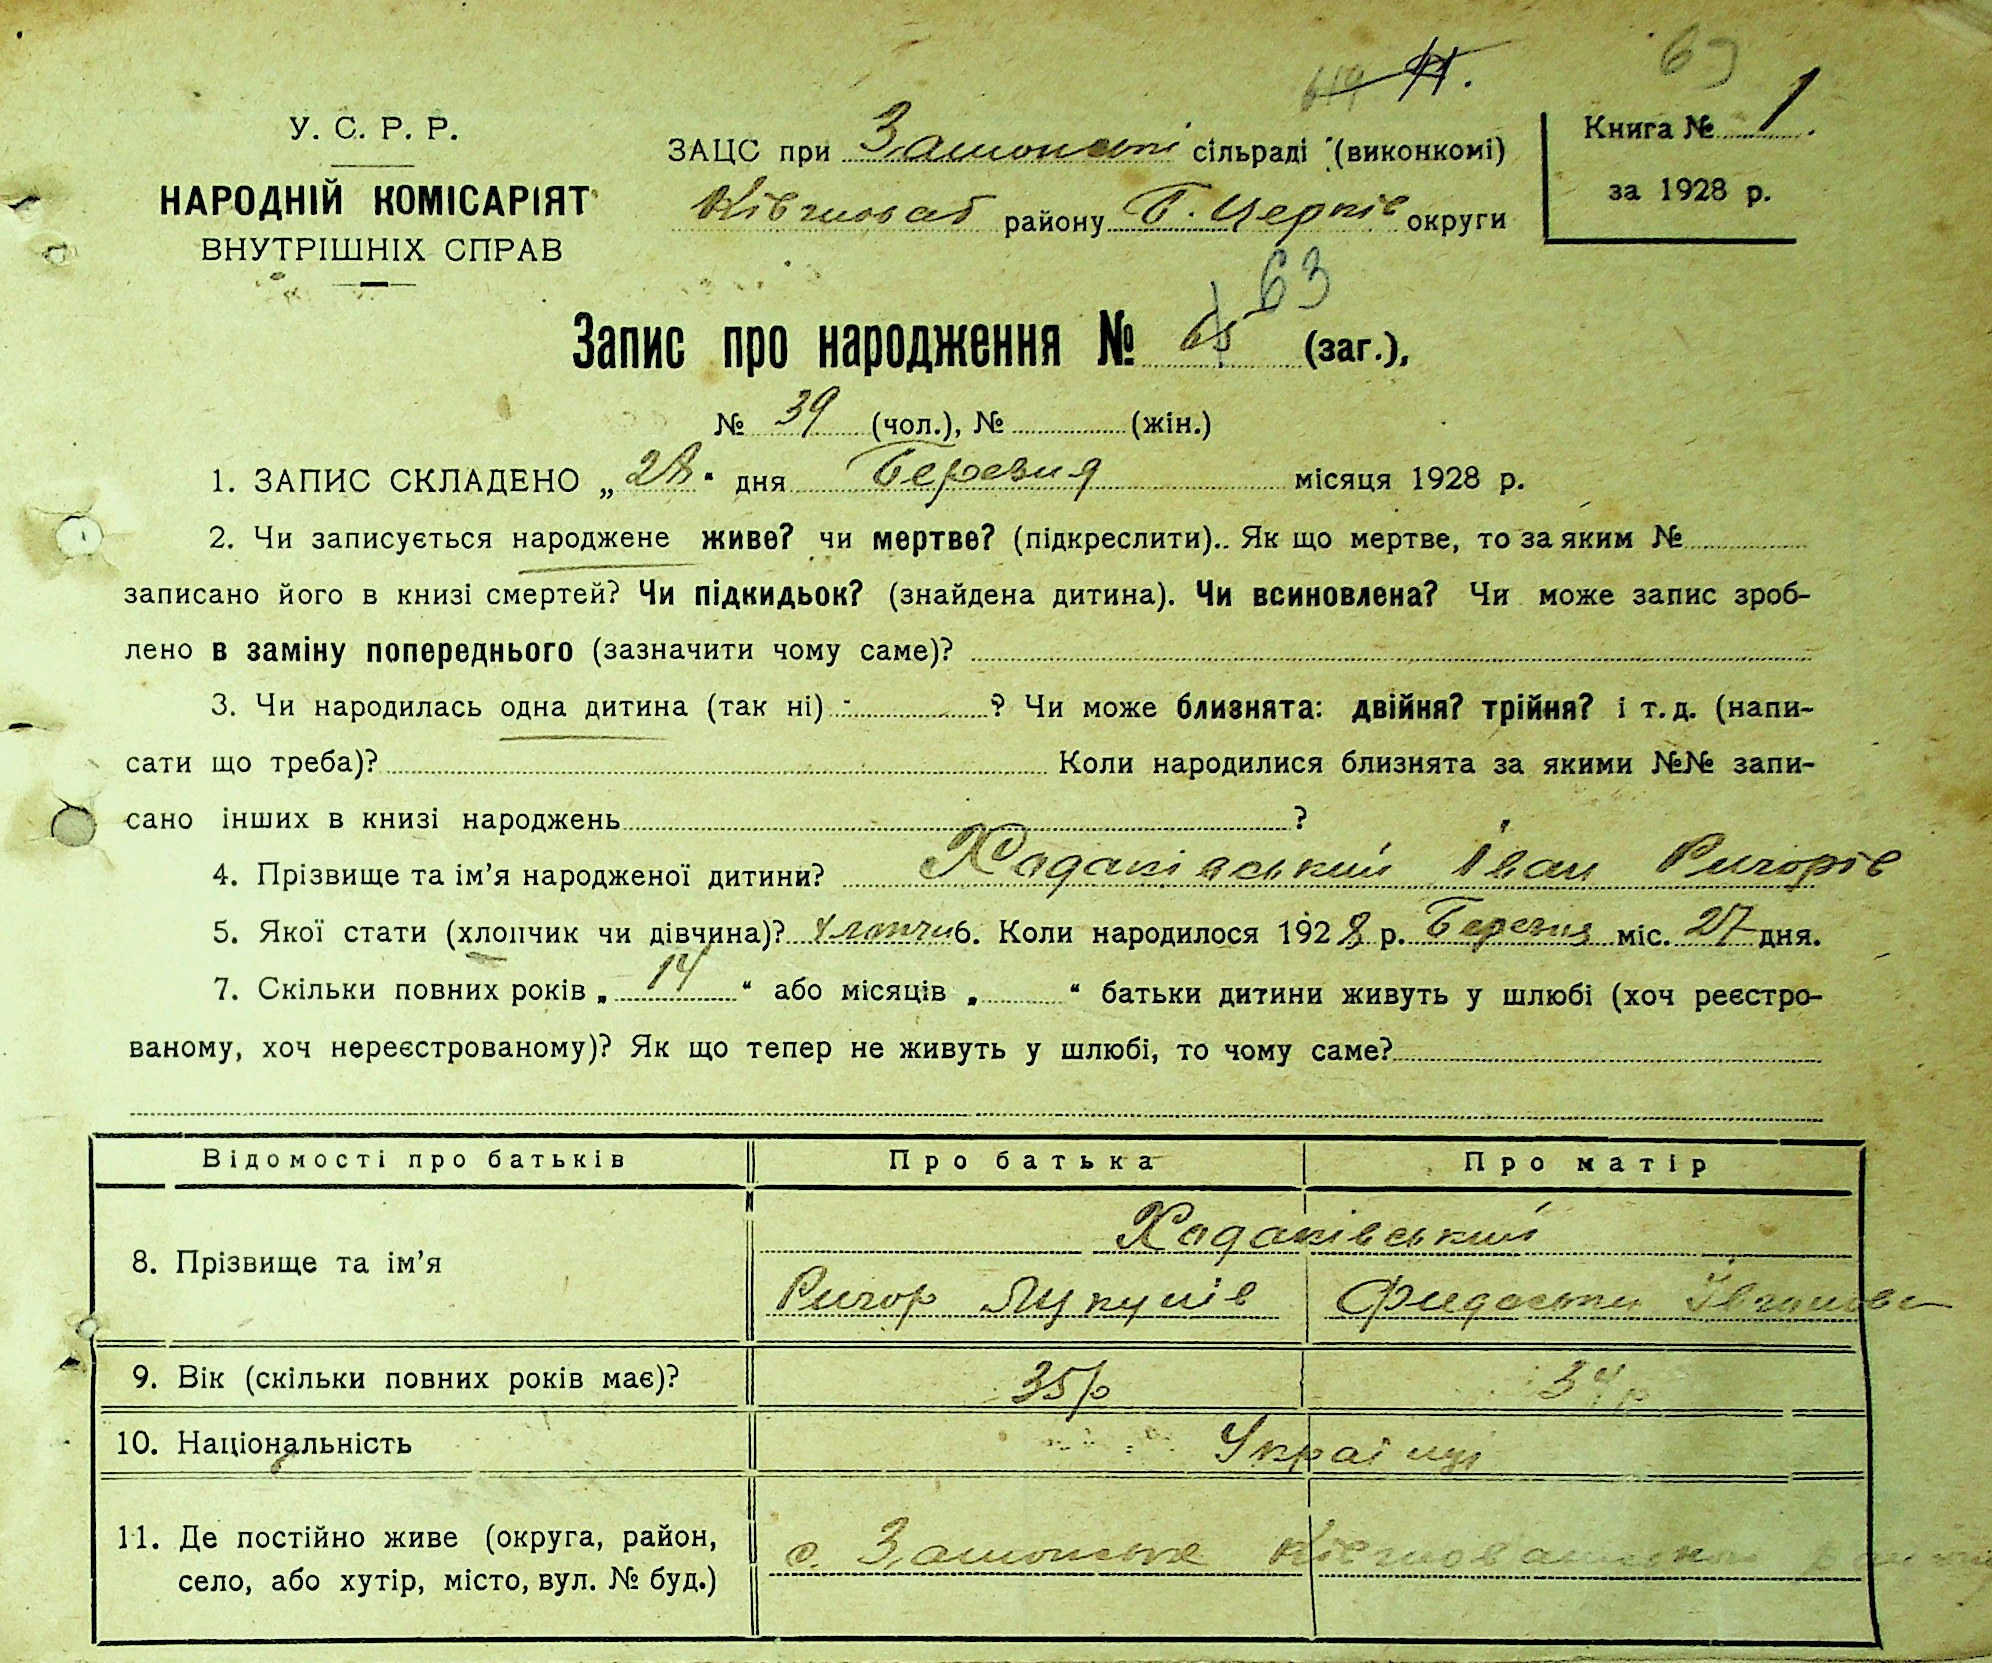 63
У. С. Р. Р.
НАРОДНІЙ КОМІСАРІЯТ
ВНУТРІШНІХ СПРАВ
ЗАЦС при сільраді (виконкомі)
району Б. Церків округи
Книга № 1.
за 1928 р.
Запис про народження № 63 (заг.),
№ 39 (чол.), № (жін.)
1. ЗАПИС СКЛАДЕНО „28“ дня Березня місяця 1928 р.
2. Чи записується народжене живе? чи мертве? (підкреслити).. Як що мертве, то за яким №
записано його в книзі смертей? Чи підкидьок? (знайдена дитина). Чи всиновлена? Чи може запис зроб-
лено в заміну попереднього (зазначити чому саме)?
3. Чи народилась одна дитина (так ні) - ? Чи може близнята: двійня? трійня? і т. д. (напи-
сати що треба)? Коли народилися близнята за якими №№ запи-
сано інших в книзі народжень ?
4. Прізвище та ім’я народженої дитини? Ходаківський Іван Ригорів
5. Якої стати (хлопчик чи дівчина)? хлопчик 6. Коли народилося 1928 р. Березня міс. 27 дня.
7. Скільки повних років „ 14 “ або місяців „ “ батьки дитини живуть у шлюбі (хоч реєстро-
ваному, хоч нереєстрованому)? Як що тепер не живуть у шлюбі, то чому саме?
Відомості про батьків Про батька Про матір
8. Прізвище та ім’я Ходаківський
Ригор Лукунів
9. Вік (скільки повних років має)? 35 р 34 р
10. Національність Українці
11. Де постійно живе (округа, район,
село, або хутір, місто, вул. № буд.)
с.